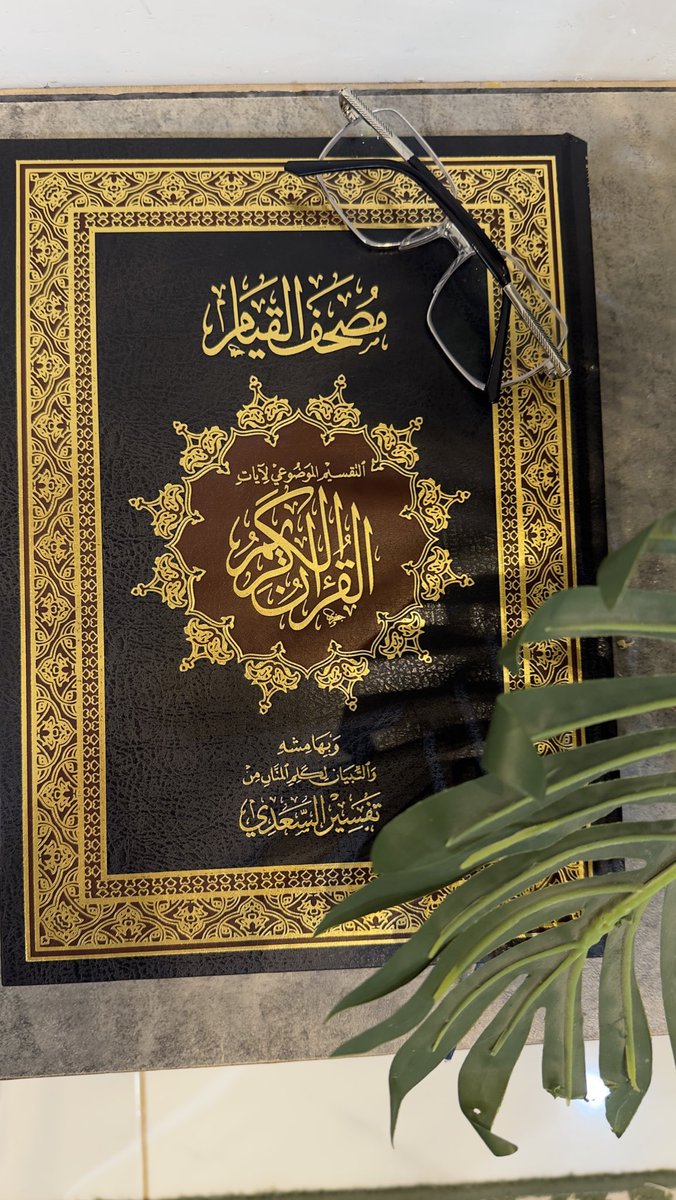 مُصْحَفُ القِيَامِ
التَّقْسِيمُ المَوْضُوعِيُّ لِآيَاتِ
القُرْآنِ الكَرِيمِ
وَبِهَامِشِهِ
وَالتِّبْيَانُ لِكَلِمِ المَنَّانِ مِنْ
تَفْسِيْرِ السَّعْدِي